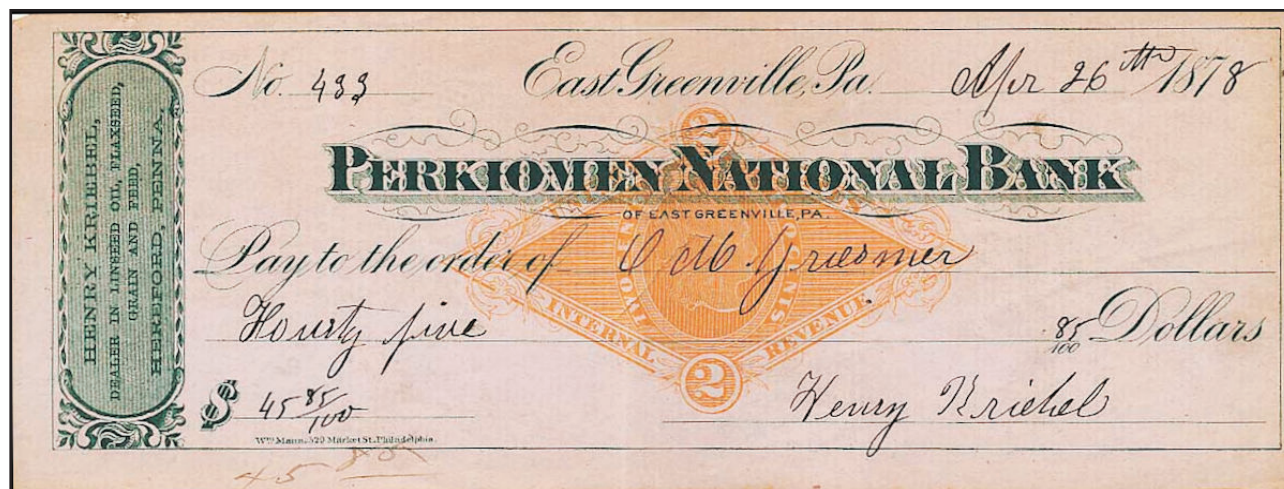 HENRY KRIEBEL,
DEALER IN LINSEED OIL, FLAXSEED,
GRAIN AND FEED,
HEREFORD, PENNA.
No. 433 East Greenville, Pa. Apr 26th 1878
2
PERKIOMEN NATIONAL BANK
OF EAST GREENVILLE, PA.
Pay to the order of Griesmer
Fourty five 85/100 Dollars
TWO CENTS
INTERNAL REVENUE
2
$ 45 85/100 Henry Kriebel
Wm. Mann, 529 Market St. Philadelphia.
45 85